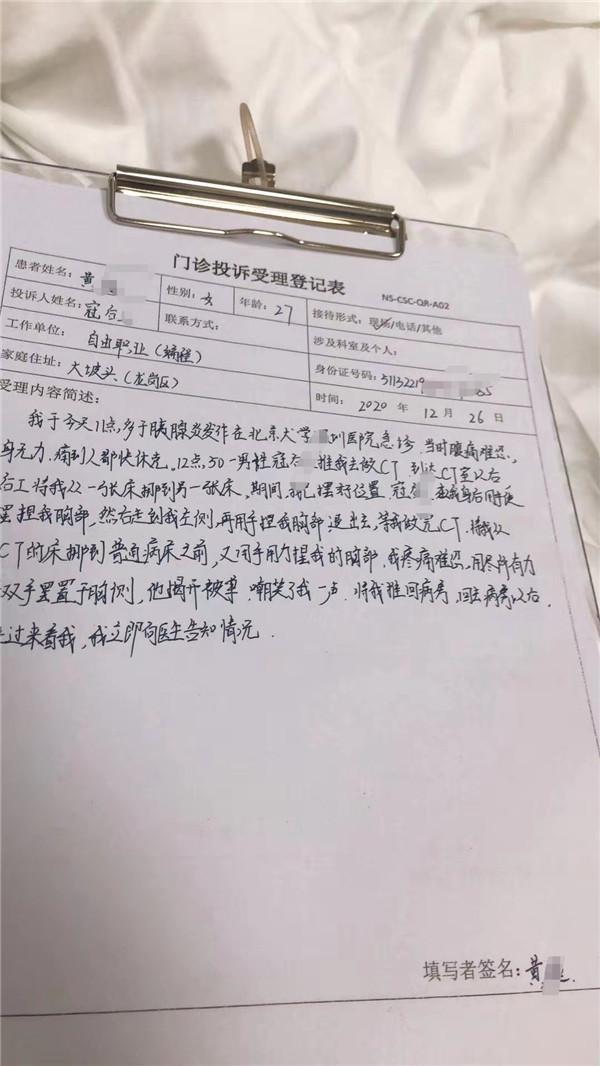 门诊投诉受理登记表
NS-CSC-QR-A02
患者姓名: 黄 性别: 女 年龄: 27 接待形式: 现场/电话/其他
投诉人姓名: 寇后 联系方式: 涉及科室及个人:
工作单位: 自由职业(编程) 身份证号码: 51132219 85
家庭住址: 大坡头(龙岗区) 时间: 2020 年 12 月 26 日
受理内容简述:
我于今天11点,多于胰腺炎发作在北京大学 圳医院急诊.当时腹痛难忍,
身无力.痛到人都快休克,12点,50一男性寇 推我去做CT.到达CT室以右
右工将我以一张床挪到另一张床,期间 我已摆好位置.寇 在我身后用手
捏我胸部,然右走到我左侧,再用手捏我胸部,退出去,等我做完CT.将我以
CT的床挪到普通病床之前,又用手用力捏我的胸部,我疼痛难忍,用尽所有力
双手置于胸侧,他揭开被罩 嘲笑了我一声.将我推回病房,回去病房以右,
过来看我,我立即向医生告知情况.
填写者签名: 黄